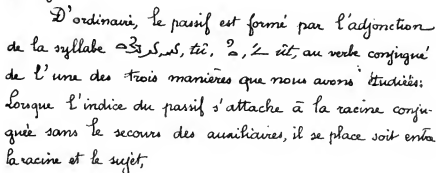 D'ordinaire, le passif est formé par l'adjonction
de la syllabe tû, ût, au verbe conjugué
de l'une des trois manières que nous avons étudiées:
Lorsque l'indice du passif s'attache à la racine conju-
guée sans le secours des auxiliaires, il se place soit entre
la racine et le sujet,